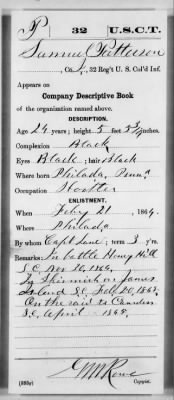 P 32 U.S.C.T.
Samuel Patterson
, Co. I, 32 Reg't U. S. Col'd Inf.
Appears on
Company Descriptive Book
of the organization named above.
DESCRIPTION.
Age 24 years; height 5 feet 5½ inches.
Complexion Black
Eyes Black; hair Black
Where born Philada, Penna
Occupation Hostler
ENLISTMENT.
When Feby 21, 1864.
Where Philada
By whom Capt Lane; term 3 y'rs.
Remarks: In battle Honey Hill
S.C. Nov 30, 1864,
In Skirmish on James
Island S.C. Feb 10, 1865.
On the raid to Camden
S.C. April 1865.
Copyist.